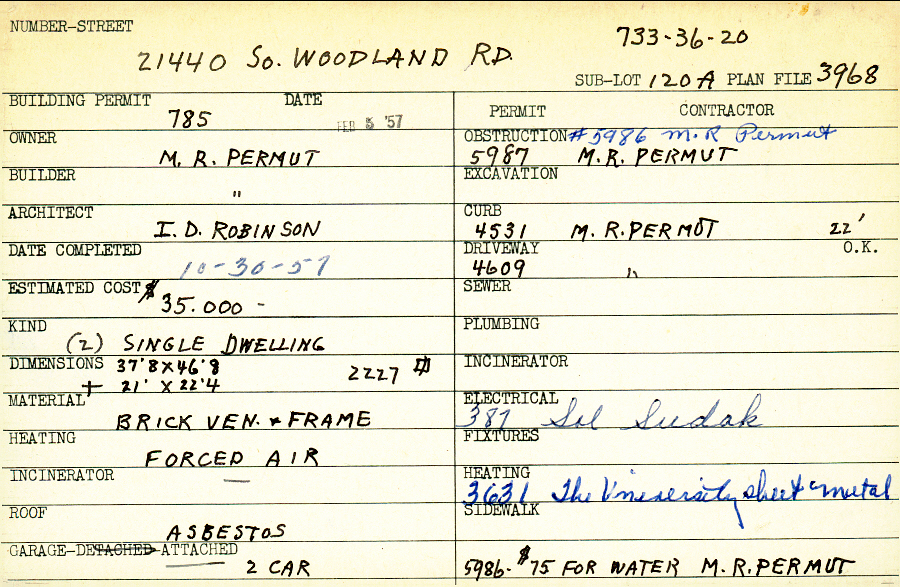 NUMBER-STREET
21440 So. WOODLAND RD.
733-36-20
SUB-LOT 120A PLAN FILE 3968
BUILDING PERMIT DATE
785 FEB 5 '57
OWNER
M. R. PERMUT
BUILDER
"
ARCHITECT
I. D. ROBINSON
DATE COMPLETED
10-30-57
ESTIMATED COST $
35.000 -
KIND
(2) SINGLE DWELLING
DIMENSIONS 37'8 X 46'8
+ 21' X 22'4 2227 #
MATERIAL
BRICK VEN. & FRAME
HEATING
FORCED AIR
INCINERATOR
—
ROOF
ASBESTOS
GARAGE-DETACHED-ATTACHED
2 CAR
PERMIT CONTRACTOR
OBSTRUCTION #5986 M. R Permut
5987 M. R. PERMUT
EXCAVATION
CURB
4531 M. R. PERMUT 22'
DRIVEWAY O.K.
4609 "
SEWER
PLUMBING
INCINERATOR
ELECTRICAL
387 Sol Sudak
FIXTURES
HEATING
3631 The University sheet & metal
SIDEWALK
5986- $75 FOR WATER M. R. PERMUT